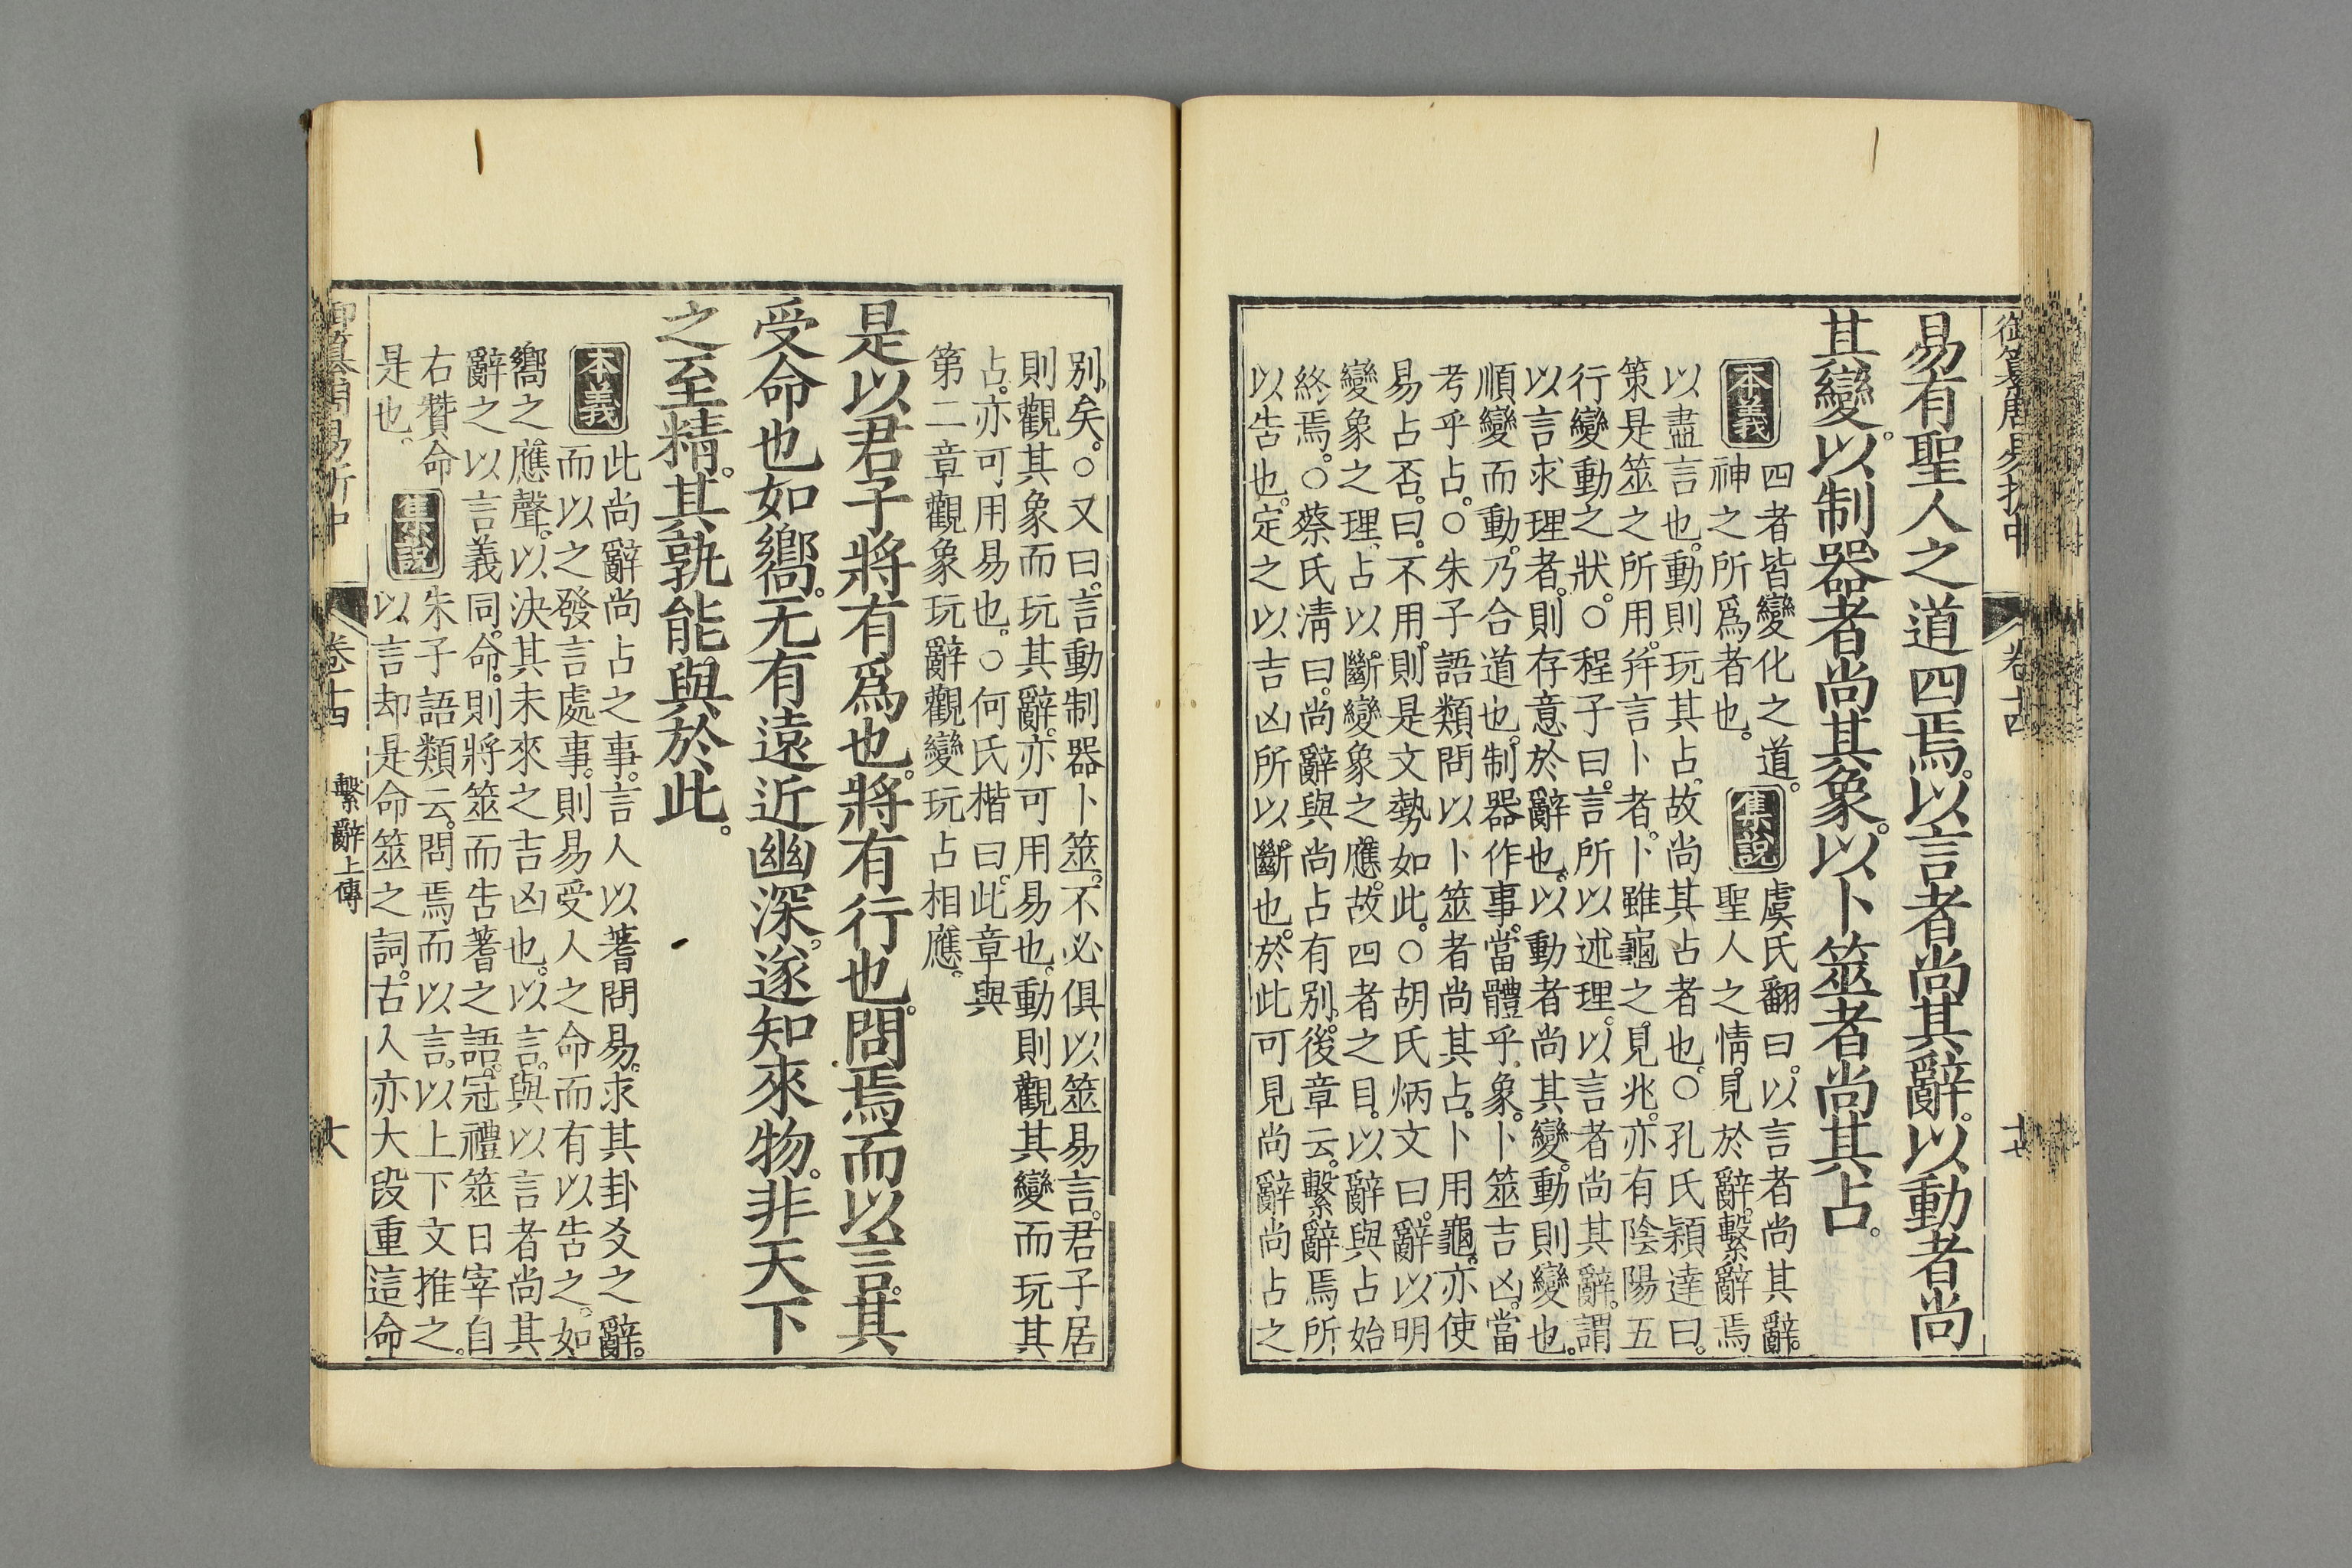 御纂周易折中
卷十四
易有聖人之道四焉。以言者尚其辭。以動者尚
其變。以制器者尚其象。以卜筮者尚其占。
本義
四者皆變化之道。
神之所爲者也。
集說
虞氏翻曰。以言者尚其辭。
聖人之情。見於辭。繫辭焉
以盡言也。動則玩其占。故尚其占者也。○孔氏穎達曰。
策是筮之所用。幷言卜者。卜雖龜之見兆。亦有陰陽五
行變動之狀。○程子曰。言所以述理。以言者尚其辭。謂
以言求理者。則存意於辭也。以動者尚其變。動則變也。
順變而動。乃合道也。制器作事。當體乎象。卜筮吉凶。當
考乎占。○朱子語類問以卜筮者尚其占。卜用龜。亦使
易占否。曰。不用。則是文勢如此。○胡氏炳文曰。辭以明
變象之理。占以斷變象之應。故四者之目。以辭與占始
終焉。○蔡氏淸曰。尚辭與尚占有別。後章云。繫辭焉所
以告也。定之以吉凶所以斷也。於此可見尚辭尚占之
別矣。○又曰。言動制器卜筮。不必俱以筮易言。君子居
則觀其象而玩其辭。亦可用易也。動則觀其變而玩其
占。亦可用易也。○何氏楷曰。此章與
第二章觀象玩辭觀變玩占相應。
是以君子將有爲也。將有行也。問焉而以言。其
受命也如嚮。无有遠近幽深。遂知來物。非天下
之至精。其孰能與於此。
本義
此尚辭尚占之事。言人以蓍問易。求其卦爻之辭。
而以之發言處事。則易受人之命而有以告之。如
嚮之應聲。以決其未來之吉凶也。以言。與以言者尚其
辭之以言義同。命。則將筮而告蓍之語。冠禮筮日宰自
右贊命
是也。
集說
朱子語類云。問焉而以言。以上下文推之。
以言却是命筮之詞。古人亦大段重這命
卷十四
繫辭上傳